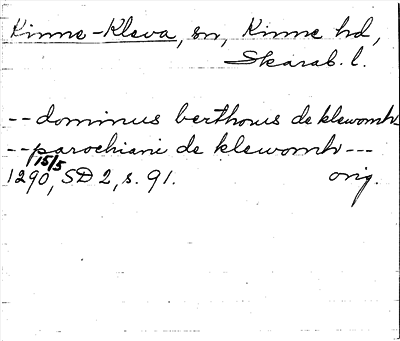 Kinne-Kleva, sn, Kinne hd,
Skarab. l.
-- dominus berthorus de klewomhr
-- parochiani de klewomhr ---
15/5
1290, SD 2, s. 91. orig.